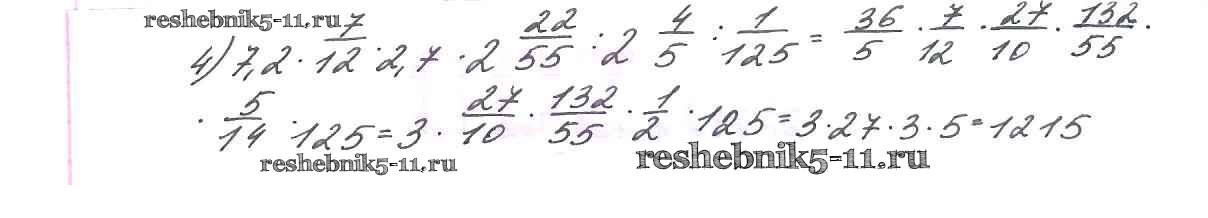 reshebnik5-11.ru
4) 7,2 · 7/12 · 2,7 · 2 22/55 : 2 4/5 : 1/125 = 36/5 · 7/12 · 27/10 · 132/55 ·
· 5/14 · 125 = 3 · 27/10 · 132/55 · 1/2 · 125 = 3·27·3·5=1215
reshebnik5-11.ru
reshebnik5-11.ru